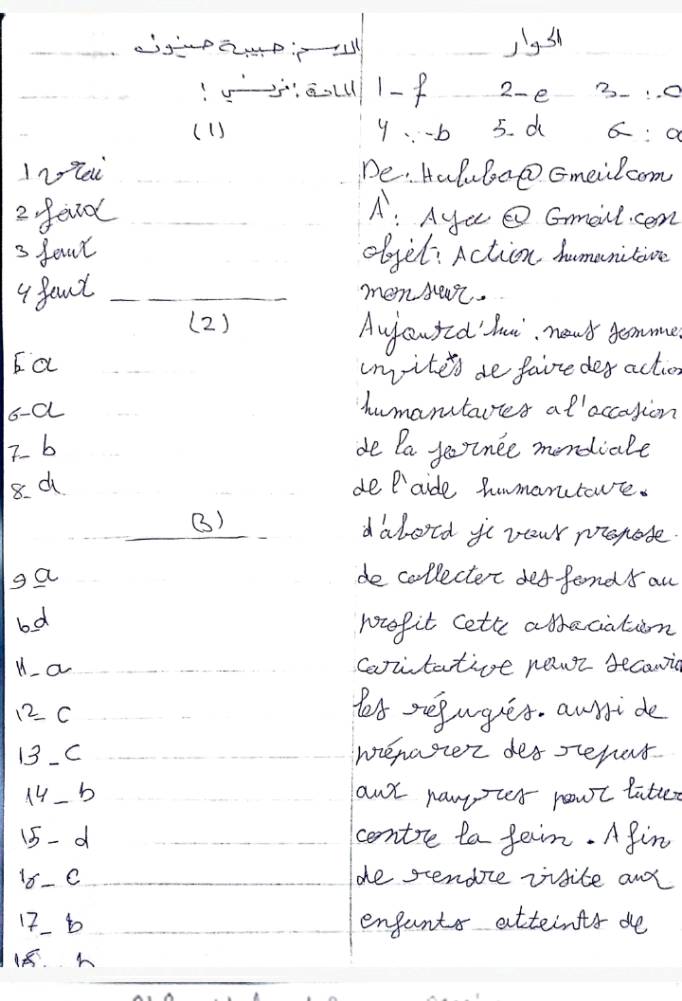 الاسم: حبيبة حسنون
المادة: فرنسي !
(1)
1 vrai
2 faux
3 faux
4 faux
(2)
5 a
6-a
7- b
8- d
(3)
9 a
10 d
11- a
12 c
13 - c
14 - b
15 - d
16 - c
17 - b
18.
الحوار
1 - f 2 - e 3 - : c
4 : - b 5 - d 6 : a
De: @ Gmeil com
A': Ayee @ Gmail.com
objet: Action humanitive
monsieur.
Aujourd'hui, nous somme
invités de faire des action
humanitaires a l'occasion
de la jornée mondiale
de l'aide humanitaire.
d'abord je vous propose
de collecter des fonds au
profit cette association
caritative pour
les réfugiés. aussi de
préparer des repas
aux pauvres pour lutter
contre la faim. Afin
de rendre visite aux
enfants atteints de